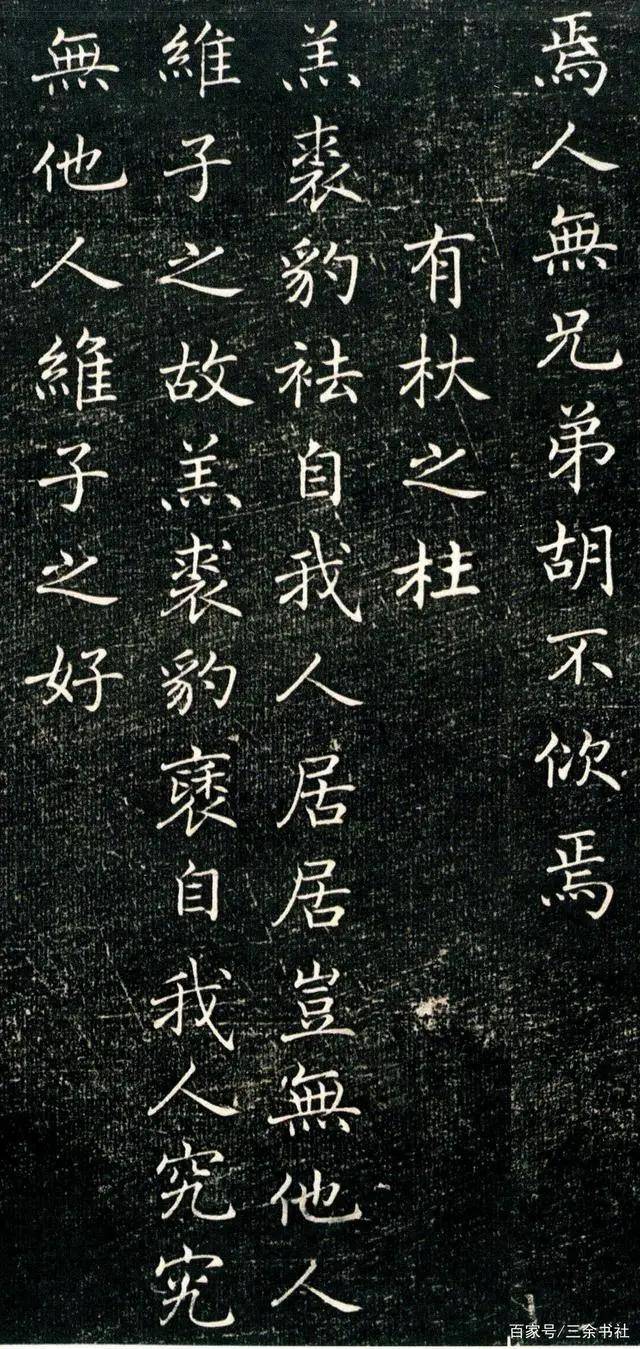 焉人無兄弟胡不佽焉
有杕之杜
羔裘豹袪自我人居居豈無他人
維子之故羔裘豹褎自我人究究
無他人維子之好
百家号/三余书社